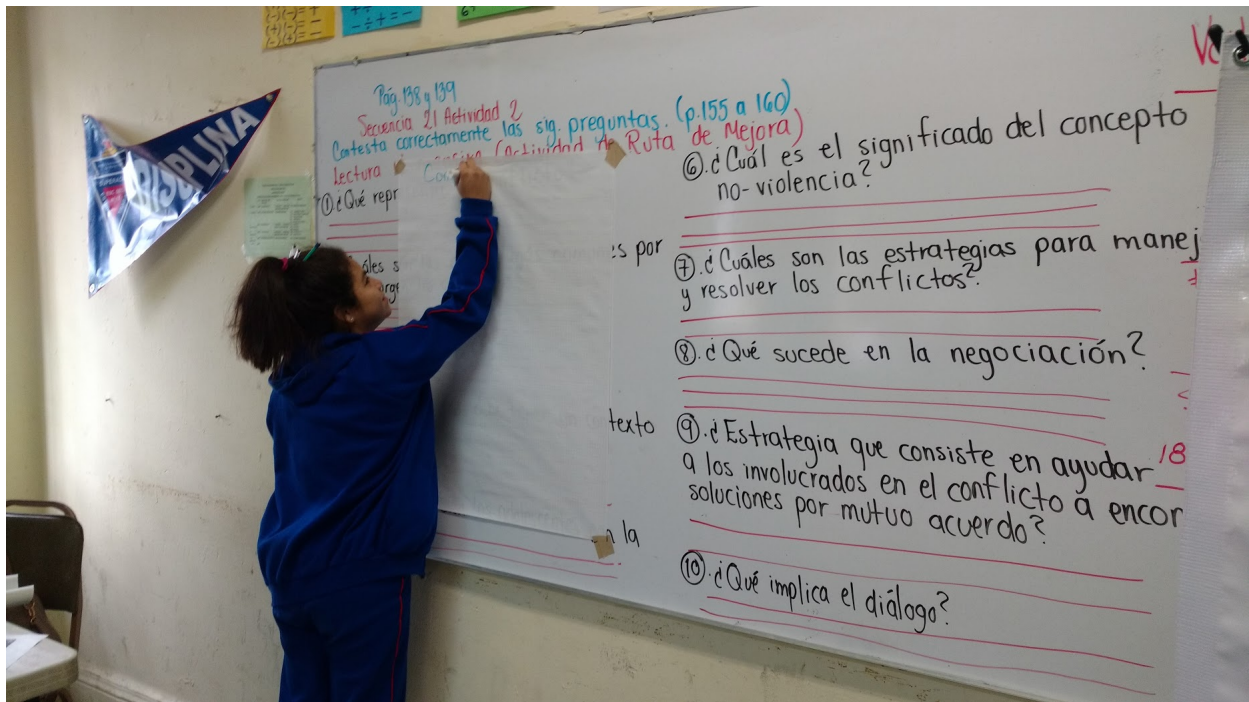 DISCIPLINA
Pág. 138 y 139
Secuencia 21 Actividad 2
Contesta correctamente las sig. preguntas. (p.155 a 160)
Lectura (Actividad de Ruta de Mejora)
① ¿Qué repr
áles s
orge
es por
texto
la
⑥. ¿Cuál es el significado del concepto
no-violencia?
⑦. ¿Cuáles son las estrategias para manej
y resolver los conflictos?
⑧. ¿Qué sucede en la negociación?
⑨. ¿Estrategia que consiste en ayudar
a los involucrados en el conflicto a encor
soluciones por mutuo acuerdo?
⑩. ¿Qué implica el diálogo?
18